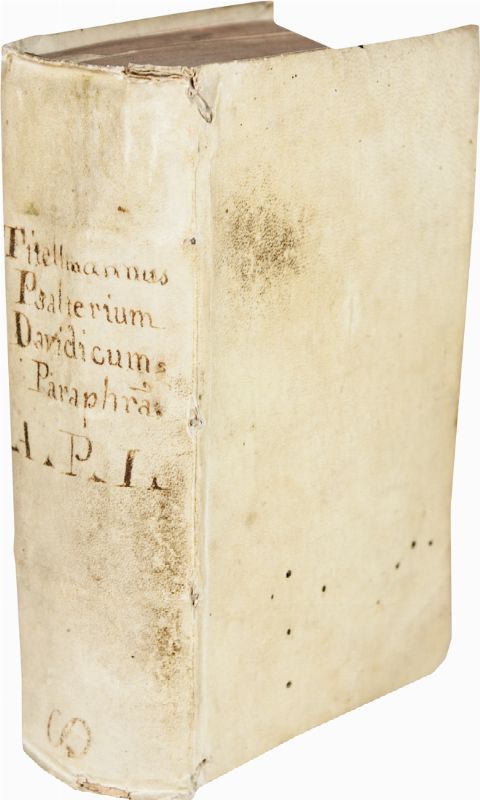 Titellmannus
Psalterium
Davidicum
Paraphrã.
A. P. I.
S